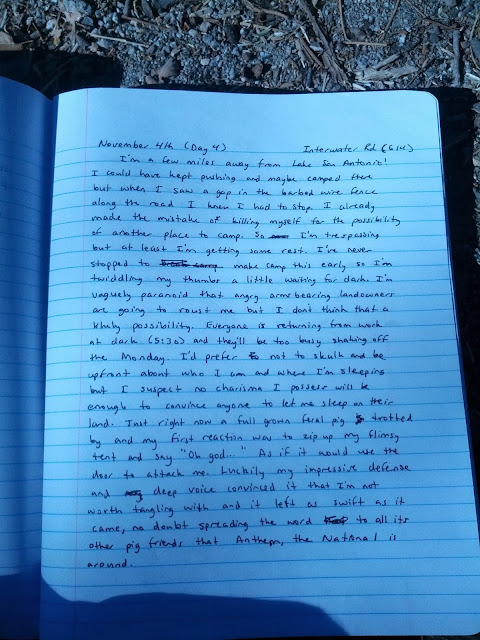 November 4th (Day 4) Interwater Rd (G14)
I'm a few miles away from Lake San Antonio!
I could have kept pushing and maybe camped there
but when I saw a gap in the barbed wire fence
along the road I knew I had to stop. I already
made the mistake of killing myself for the possibility
of another place to camp. So I'm trespassing
but at least I'm getting some rest. I've never
stopped to break camp make camp this early so I'm
twiddling my thumbs a little waiting for dark. I'm
vaguely paranoid that angry arms bearing landowners
are going to roust me but I dont think that a
likely possibility. Everyone is returning from work
at dark (5:30) and they'll be too busy shaking off
the Monday. I'd prefer to not to skulk and be
upfront about who I am and where I'm sleeping
but I suspect no charisma I possess will be
enough to convince anyone to let me sleep on their
land. Just right now a full grown feral pig trotted
by and my first reaction was to zip up my flimsy
tent and say "Oh god..." As if it would use the
door to attack me. Luckily my impressive defense
and deep voice convinced it that I'm not
worth tangling with and it left as swift as it
came, no doubt spreading the word to all its
other pig friends that Anthem, the National is
around.